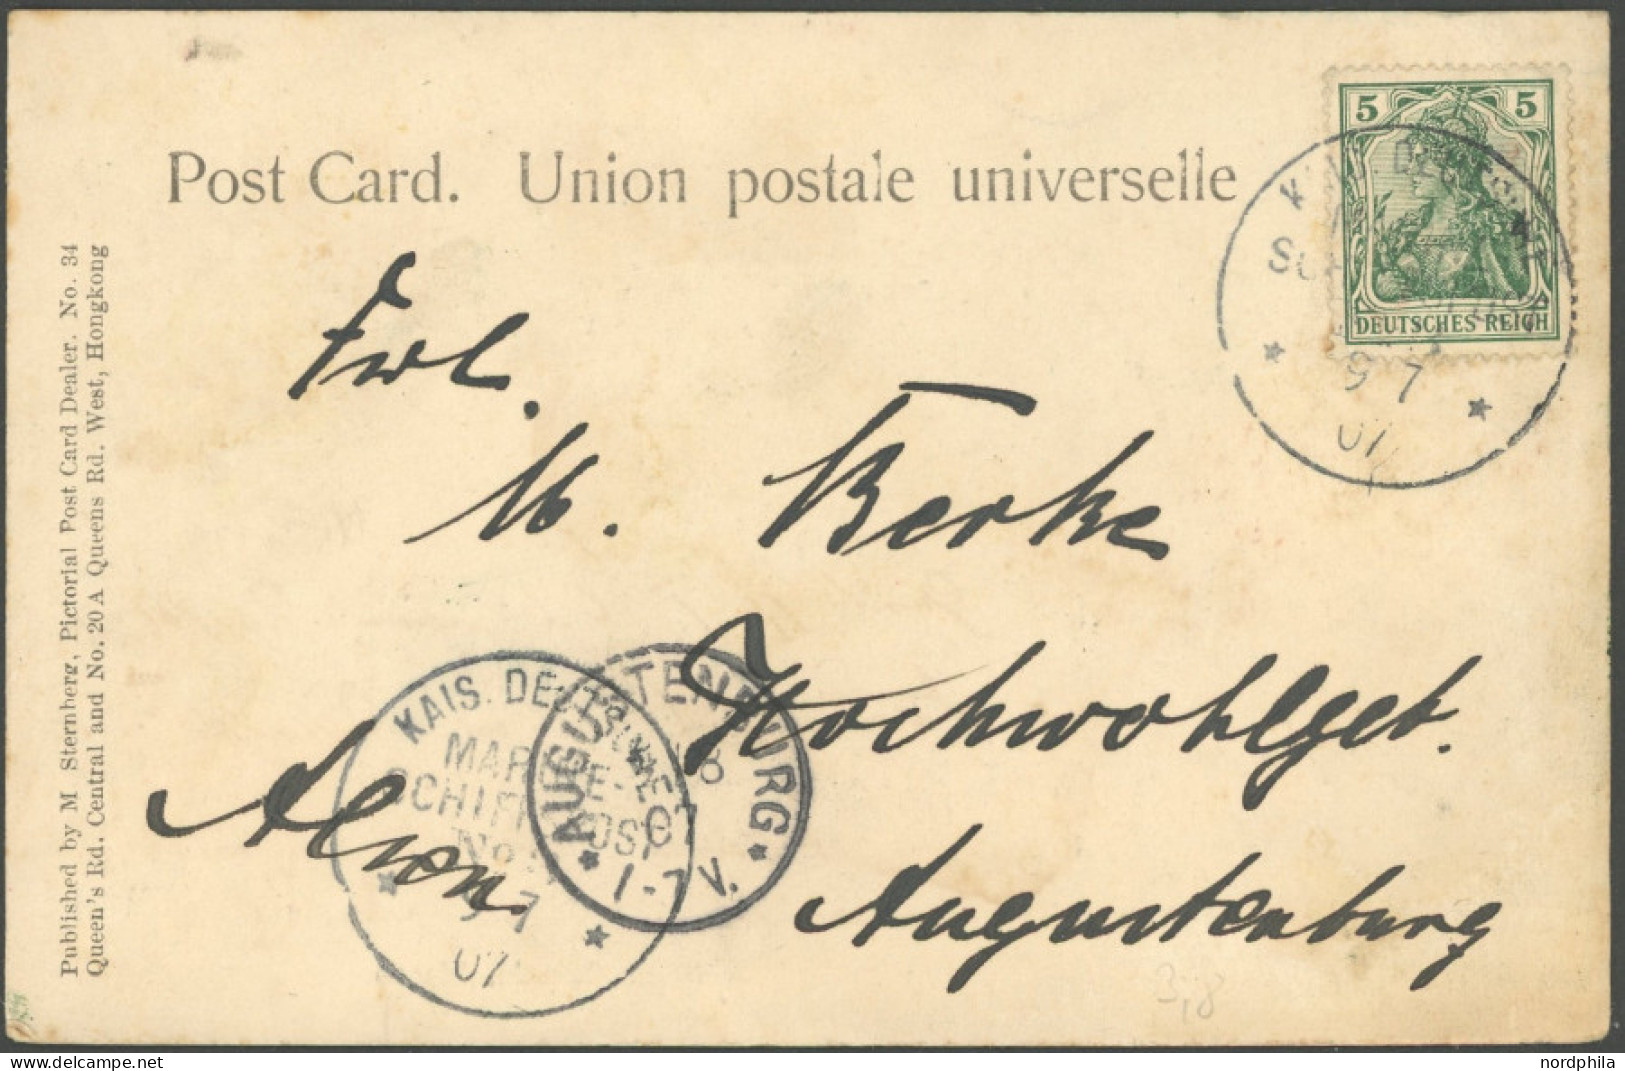 Post Card. Union postale universelle
5 5
DEUTSCHES REICH
9 7
07
Published by M Sternberg, Pictorial Post Card Dealer. No. 34
Queen's Rd. Central and No. 20 A Queens Rd. West, Hongkong
Frl.
M. Berke
Hochwohlgeb.
Alsen.
Augustenburg
KAIS. DEUTSCHE
MAR.
SCHIFFSPOST
No
9 7
07
AUGUSTENBURG
8
07
1-2 V.
3,8
nordphila